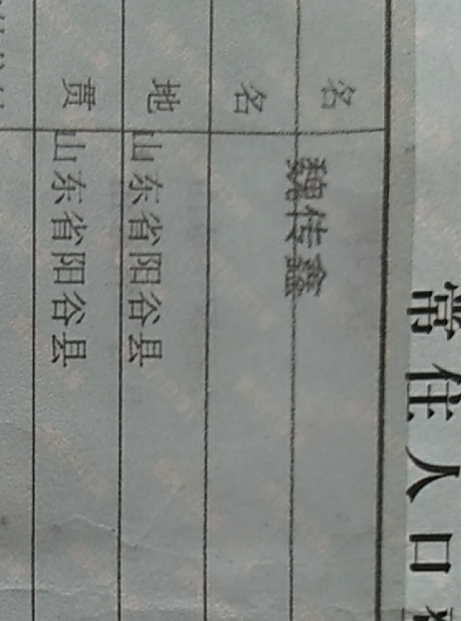 常住人口
名 魏传鑫
名
地 山东省阳谷县
贯 山东省阳谷县